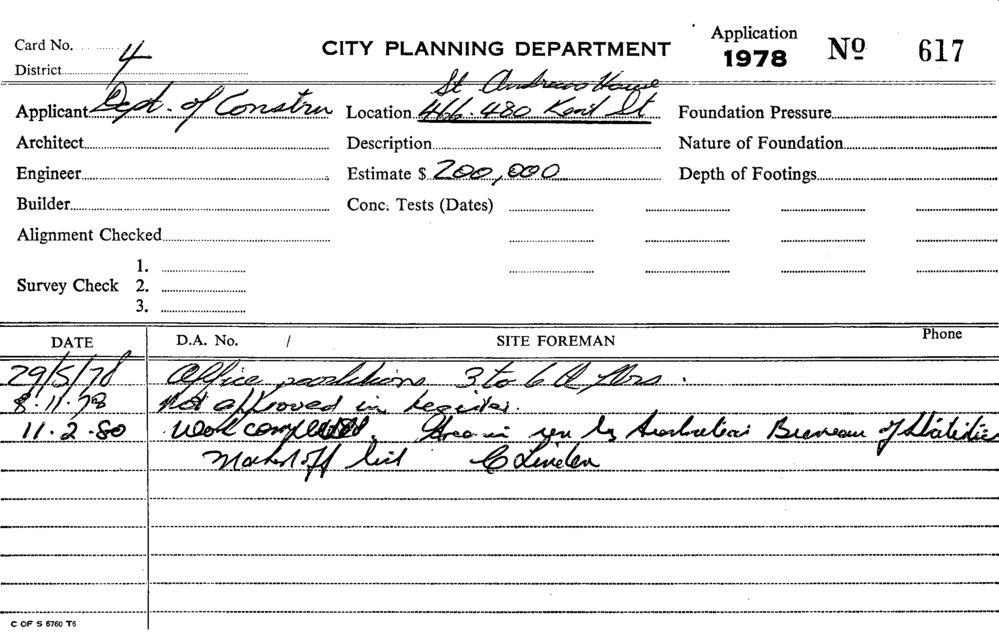 Card No. 4
District
CITY PLANNING DEPARTMENT
Application
1978
No 617
St Andrews House
Applicant Dept. of Constru
Location 466-480 Kent St
Foundation Pressure
Architect
Description
Nature of Foundation
Engineer
Estimate $ 200,000
Depth of Footings
Builder
Conc. Tests (Dates)
Alignment Checked
1.
Survey Check 2.
3.
DATE D.A. No. / SITE FOREMAN Phone
29/5/78 Office partitions 3 to 6 flrs.
8.11.78 Not approved in register.
11.2.80 Work completed. Area in use by Australian Bureau of Statistics
Marked off list C Linden
C OF S 6760 T6